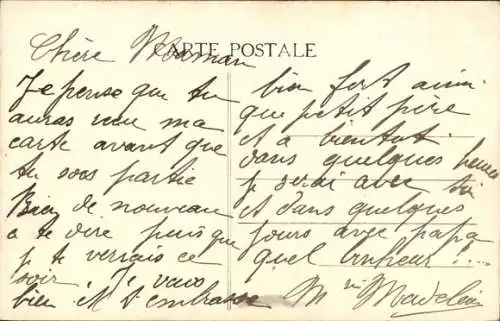 CARTE POSTALE
Chère Maman
Je pense que tu
auras reçu ma
carte avant que
tu sois partie
Rien de nouveau
a te dire puis que
je te verrais ce
soir. Je vais
bien et t'embrasse
bien fort ainsi
que petit père
et a bientot.
dans quelques heures
je serai avec toi
et dans quelques
jours avec papa
quel bonheur !...
Madeleine